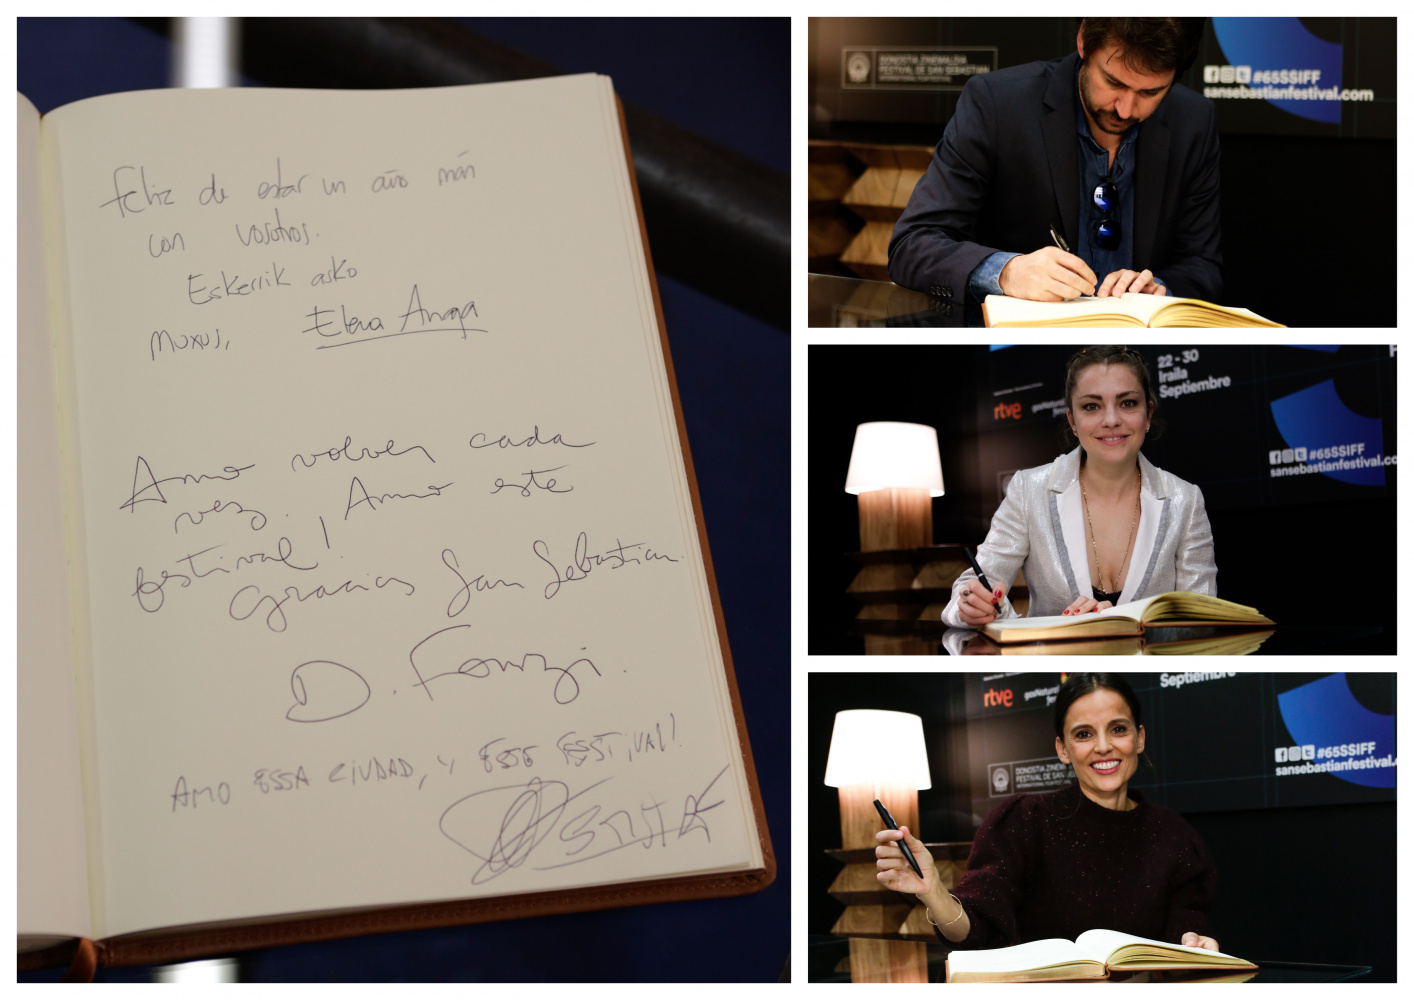 feliz de estar un año más
con vosotros.
Eskerrik asko
Muxus, Elena Anaya
Amo volver cada
vez. Amo este
festival!
Gracias San Sebastian.
D. Fonzi.
AMO ESSA CIUDAD, y ESSE FESTIVAL!
DONOSTIA ZINEMALDIA
FESTIVAL DE SAN SEBASTIAN
INTERNATIONAL FILM FESTIVAL
#65SSIFF
sansebastianfestival.com
22 - 30
Iraila
Septiembre
rtve
#65SSIFF
sansebastianfestival.co
Septiembre
rtve
gasNatural
DONOSTIA ZINEM
FESTIVAL DE SAN SE
#65SSIFF
sansebastianfestival.com